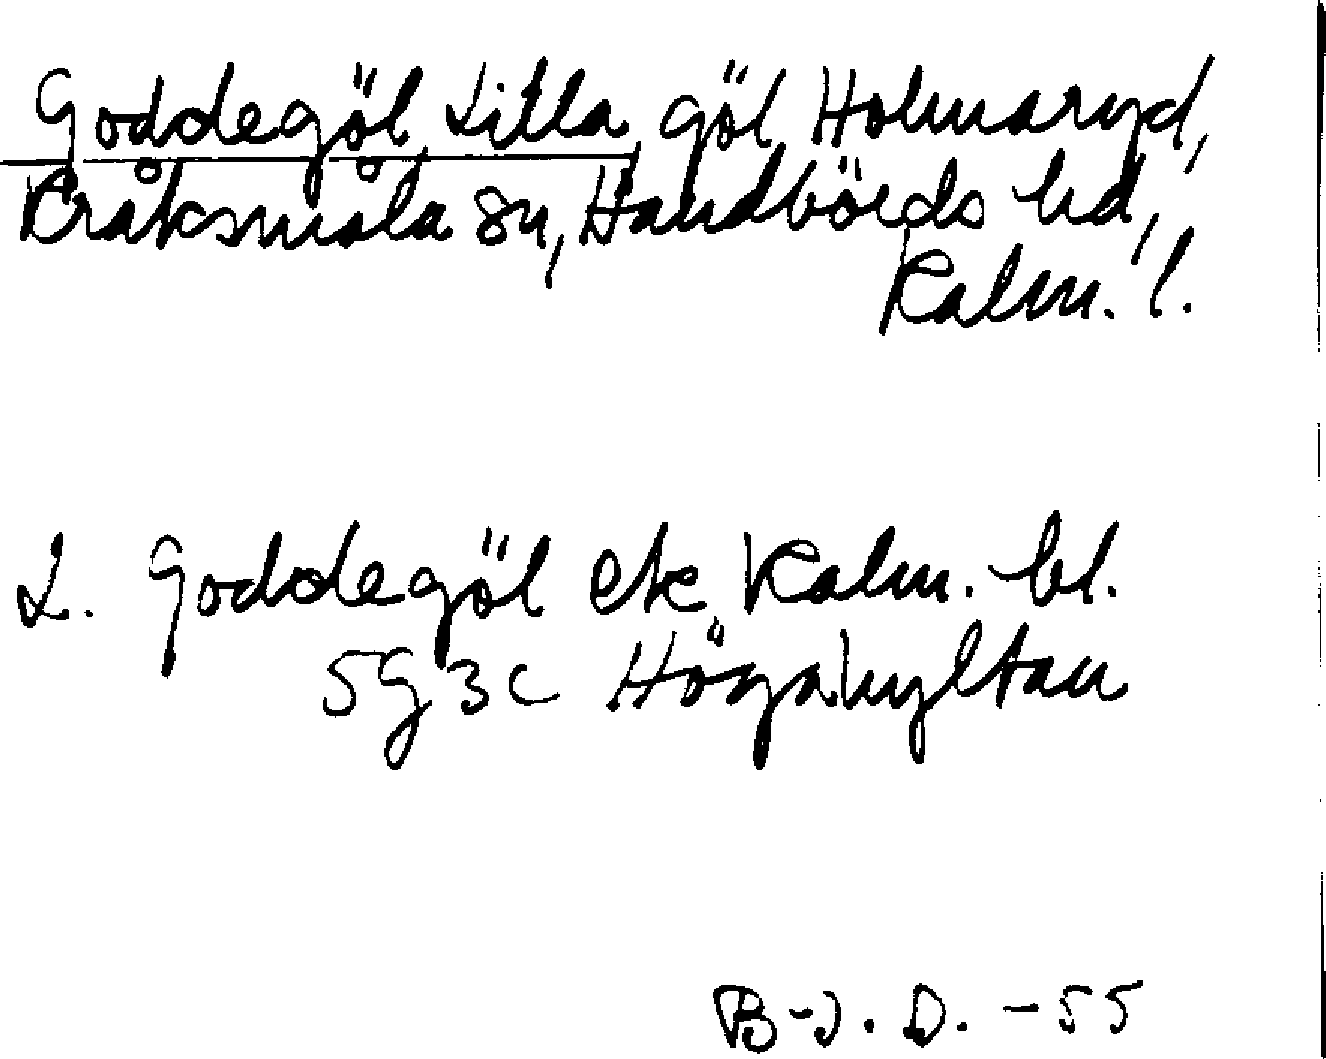 Goddegöl Lilla göl Holmaryd,
Kråksmåla sn, Handbörds hd,
Kalm. l.
L. Goddegöl ek Kalm. bl.
5G3c Högahyltan
B-J. D. -55